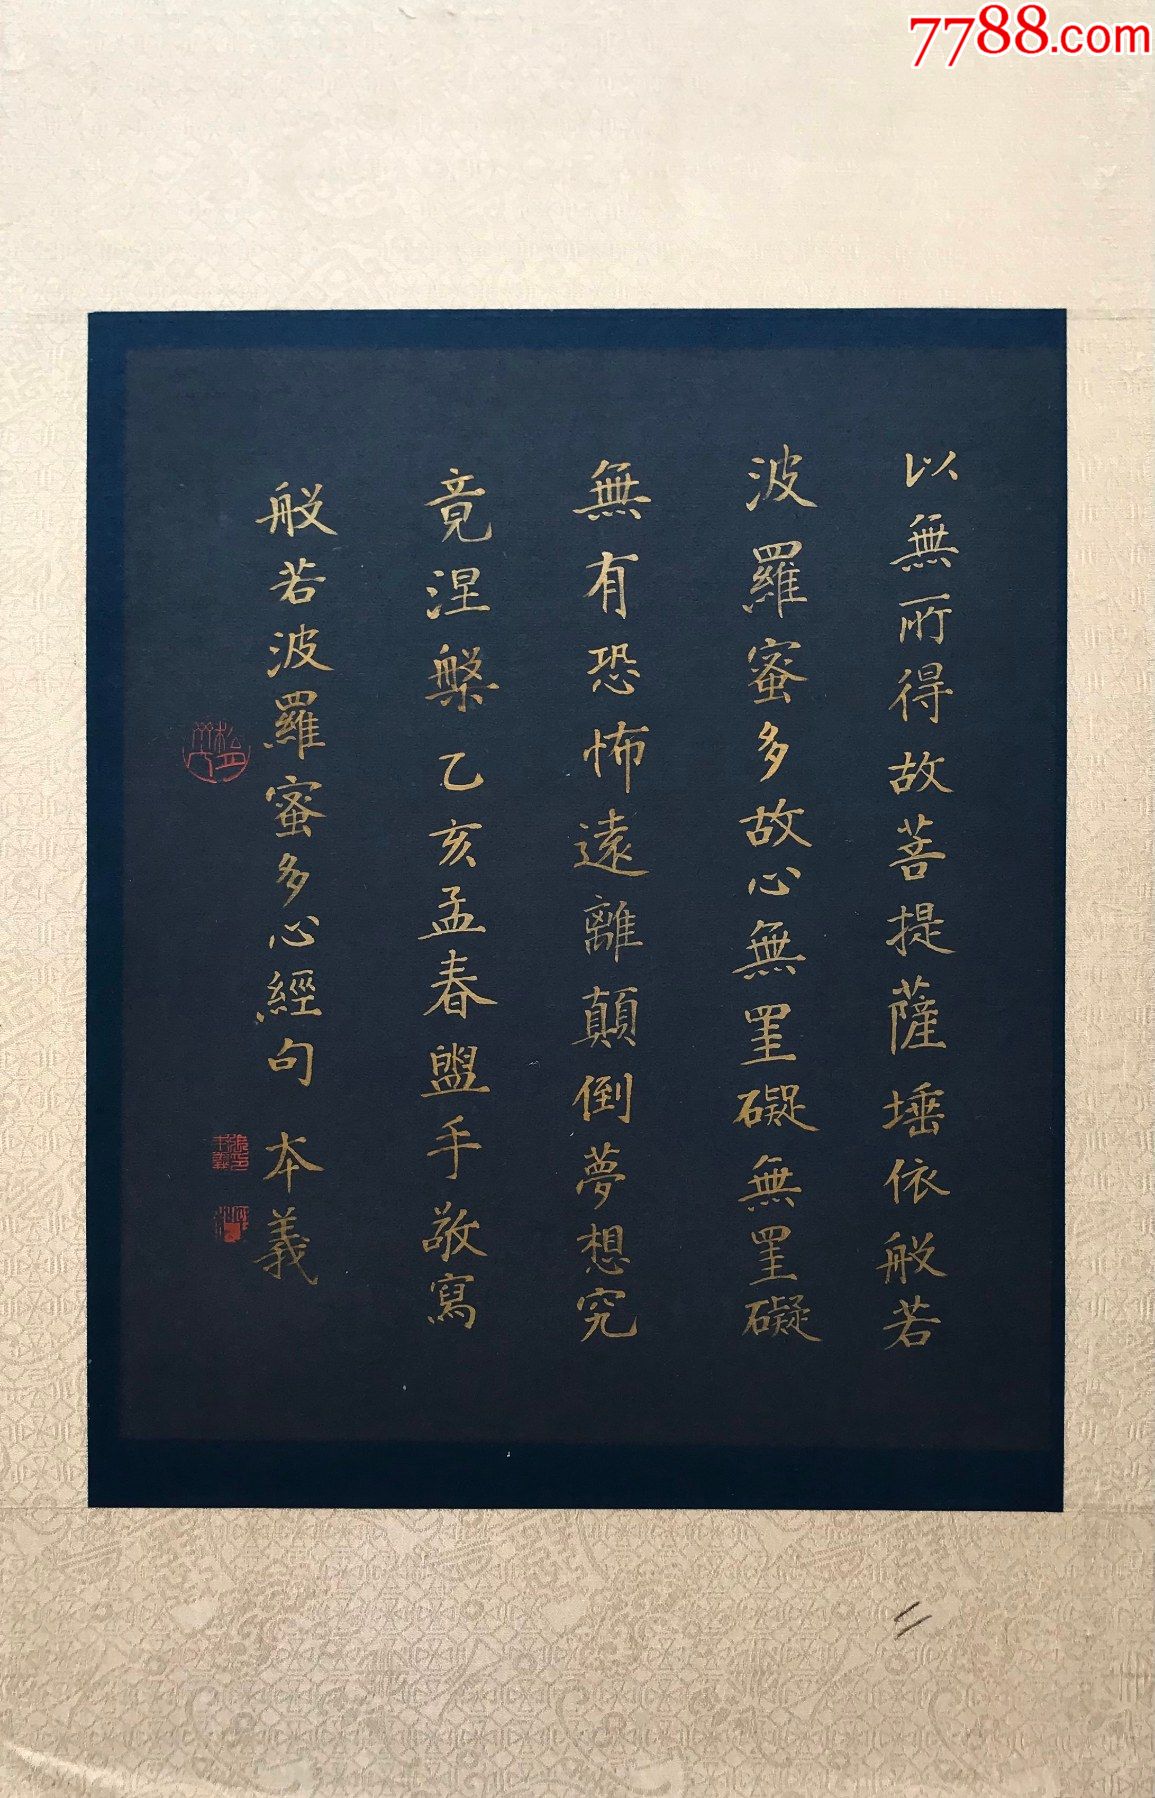 7788.com
以無所得故菩提薩埵依般若
波羅蜜多故心無罣礙無罣礙
無有恐怖遠離顛倒夢想究
竟涅槃乙亥孟春盥手敬寫
般若波羅蜜多心經句 本義
二